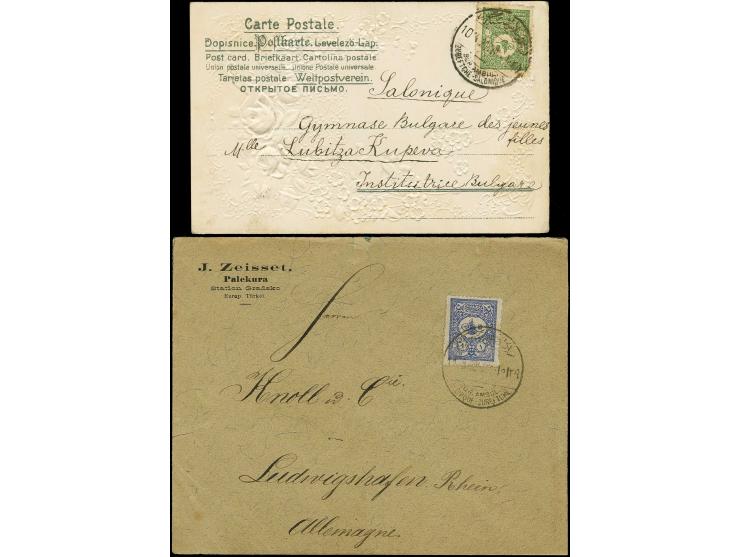 Carte Postale.
Dopisnice. Postkarte. Levelező-Lap.
Post card. Briefkaart. Cartolina postale
Union postale universelle. Unione Postale universale
Tarjetas postale Weltpostverein.
ОТКРЫТОЕ ПИСЬМО.
Salonique
Gymnase Bulgare des jeunes
filles
Mlle Lubitza Kupeva
Institutrice Bulgare
BUR. AMBUL.
J. Zeisset,
Palekura
Station Gradsko
Europ. Türkei.
Herrn
Knoll & Cie.
in
Ludwigshafen Rhein.
Allemagne
BUR. AMBUL